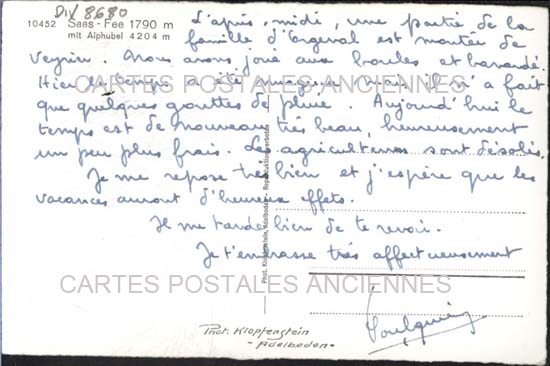 DIV 8680
10452 Saas-Fee 1790 m
mit Alphubel 4204 m
L'après-midi, une partie de la
famille d'Orgeval est montée de
Veyrier. Nous avons joué aux boules et bavardé.
Hier le temps a été nuageux mais il n'a fait
que quelques gouttes de pluie. Aujourd'hui le
temps est de nouveau très beau, heureusement
un peu plus frais. Les agriculteurs sont désolés.
Je me repose très bien et j'espère que les
vacances auront d'heureux effets.
Il me tarde bien de te revoir.
Je t'embrasse très affectueusement
CARTES POSTALES ANCIENNES
CARTES POSTALES ANCIENNES
Phot. Klopfenstein, Adelboden - Reproduktion verboten
Phot. Klopfenstein
- Adelboden -